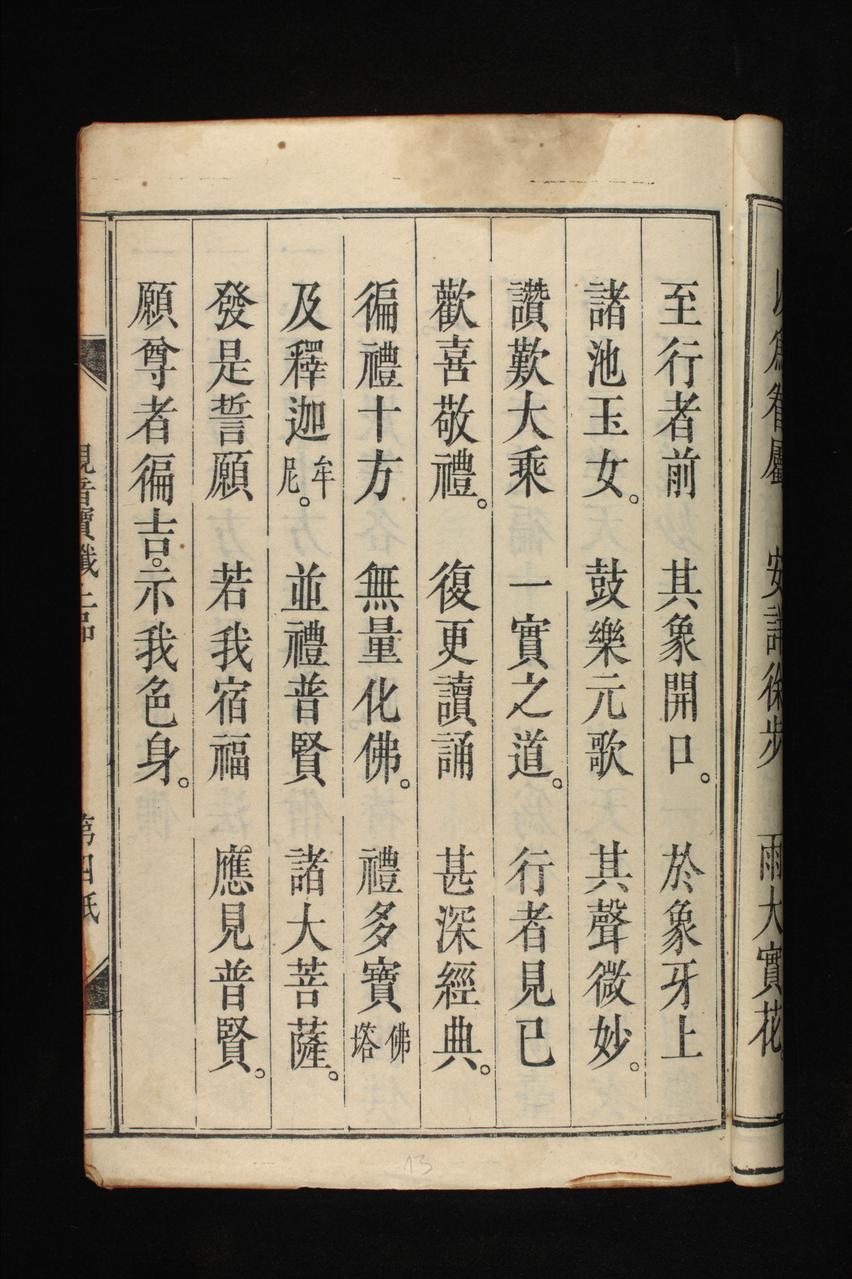 以爲眷屬　安詳徐步　雨大寶花
至行者前　其象開口。於象牙上
諸池玉女。鼓樂元歌　其聲微妙。
讚歎大乘　一實之道。行者見已
歡喜敬禮。復更讀誦　甚深經典。
徧禮十方　無量化佛。禮多寶佛塔
及釋迦牟尼。並禮普賢　諸大菩薩。
發是誓願　若我宿福　應見普賢。
願尊者徧吉。示我色身。
觀音寶懺上中　第四紙
13